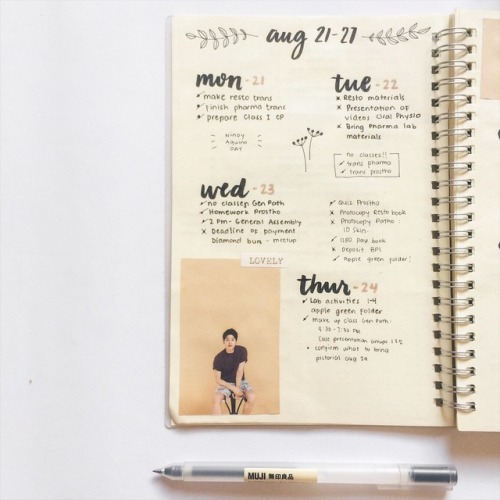 aug 21-27
mon - 21
make resto trans
finish pharma trans
prepare class 1 CP
Ninoy
Aquino
DAY
tue - 22
Resto materials
Presentation of
videos Oral Physio
Bring Pharma lab
materials
no classes!!
trans pharma
trans prostho
wed - 23
no classes Gen Path
Homework Prostho
2 PM - General Assembly
Deadline of payment
Diamond burs - meetup
Quiz Prostho
Photocopy Resto book
Photocopy Patho:
Skin
book
Deposit BPI
Apple green folder!
LOVELY
thur - 24
Lab activities 1-4
apple green folder
make up class Gen Path:
Case presentation groups
confirm what to bring
pictorial Aug 29
MUJI 無印良品